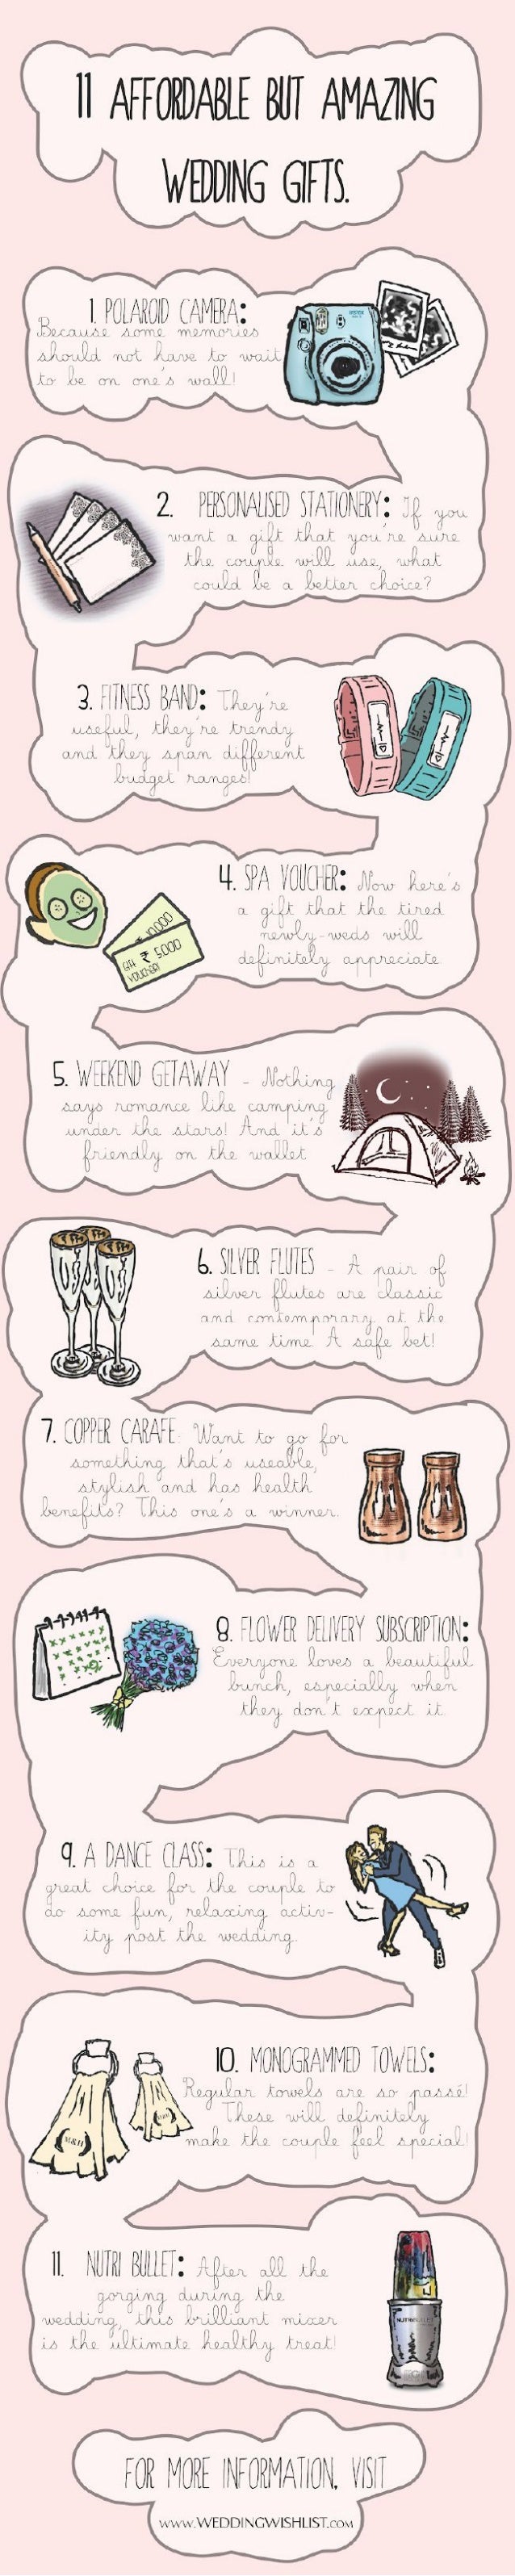 11 AFFORDABLE BUT AMAZING
WEDDING GIFTS.
1. POLAROID CAMERA:
Because some memories
should not have to wait
to be on one's wall!
2. PERSONALISED STATIONERY: If you
want a gift that you're sure
the couple will use, what
could be a better choice?
3. FITNESS BAND: They're
useful, they're trendy
and they span different
budget ranges!
4. SPA VOUCHER: Now here's
a gift that the tired
newly-weds will
definitely appreciate
₹ 10,000
GIFT ₹ 5,000
VOUCHER!
5. WEEKEND GETAWAY - Nothing
says romance like camping
under the stars! And it's
friendly on the wallet
6. SILVER FLUTES - A pair of
silver flutes are classic
and contemporary at the
same time. A safe bet!
7. COPPER CARAFE: Want to go for
something that's useable,
stylish and has health
benefits? This one's a winner.
8. FLOWER DELIVERY SUBSCRIPTION:
Everyone loves a beautiful
bunch, especially when
they don't expect it.
9. A DANCE CLASS: This is a
great choice for the couple to
do some fun, relaxing activ-
ity post the wedding.
10. MONOGRAMMED TOWELS:
Regular towels are so passé!
These will definitely
make the couple feel special!
M&H
11. NUTRI BULLET: After all the
gorging during the
wedding, this brilliant mixer
is the ultimate healthy treat!
NUTRIBULLET
FOR MORE INFORMATION, VISIT
WWW.WEDDINGWISHLIST.COM